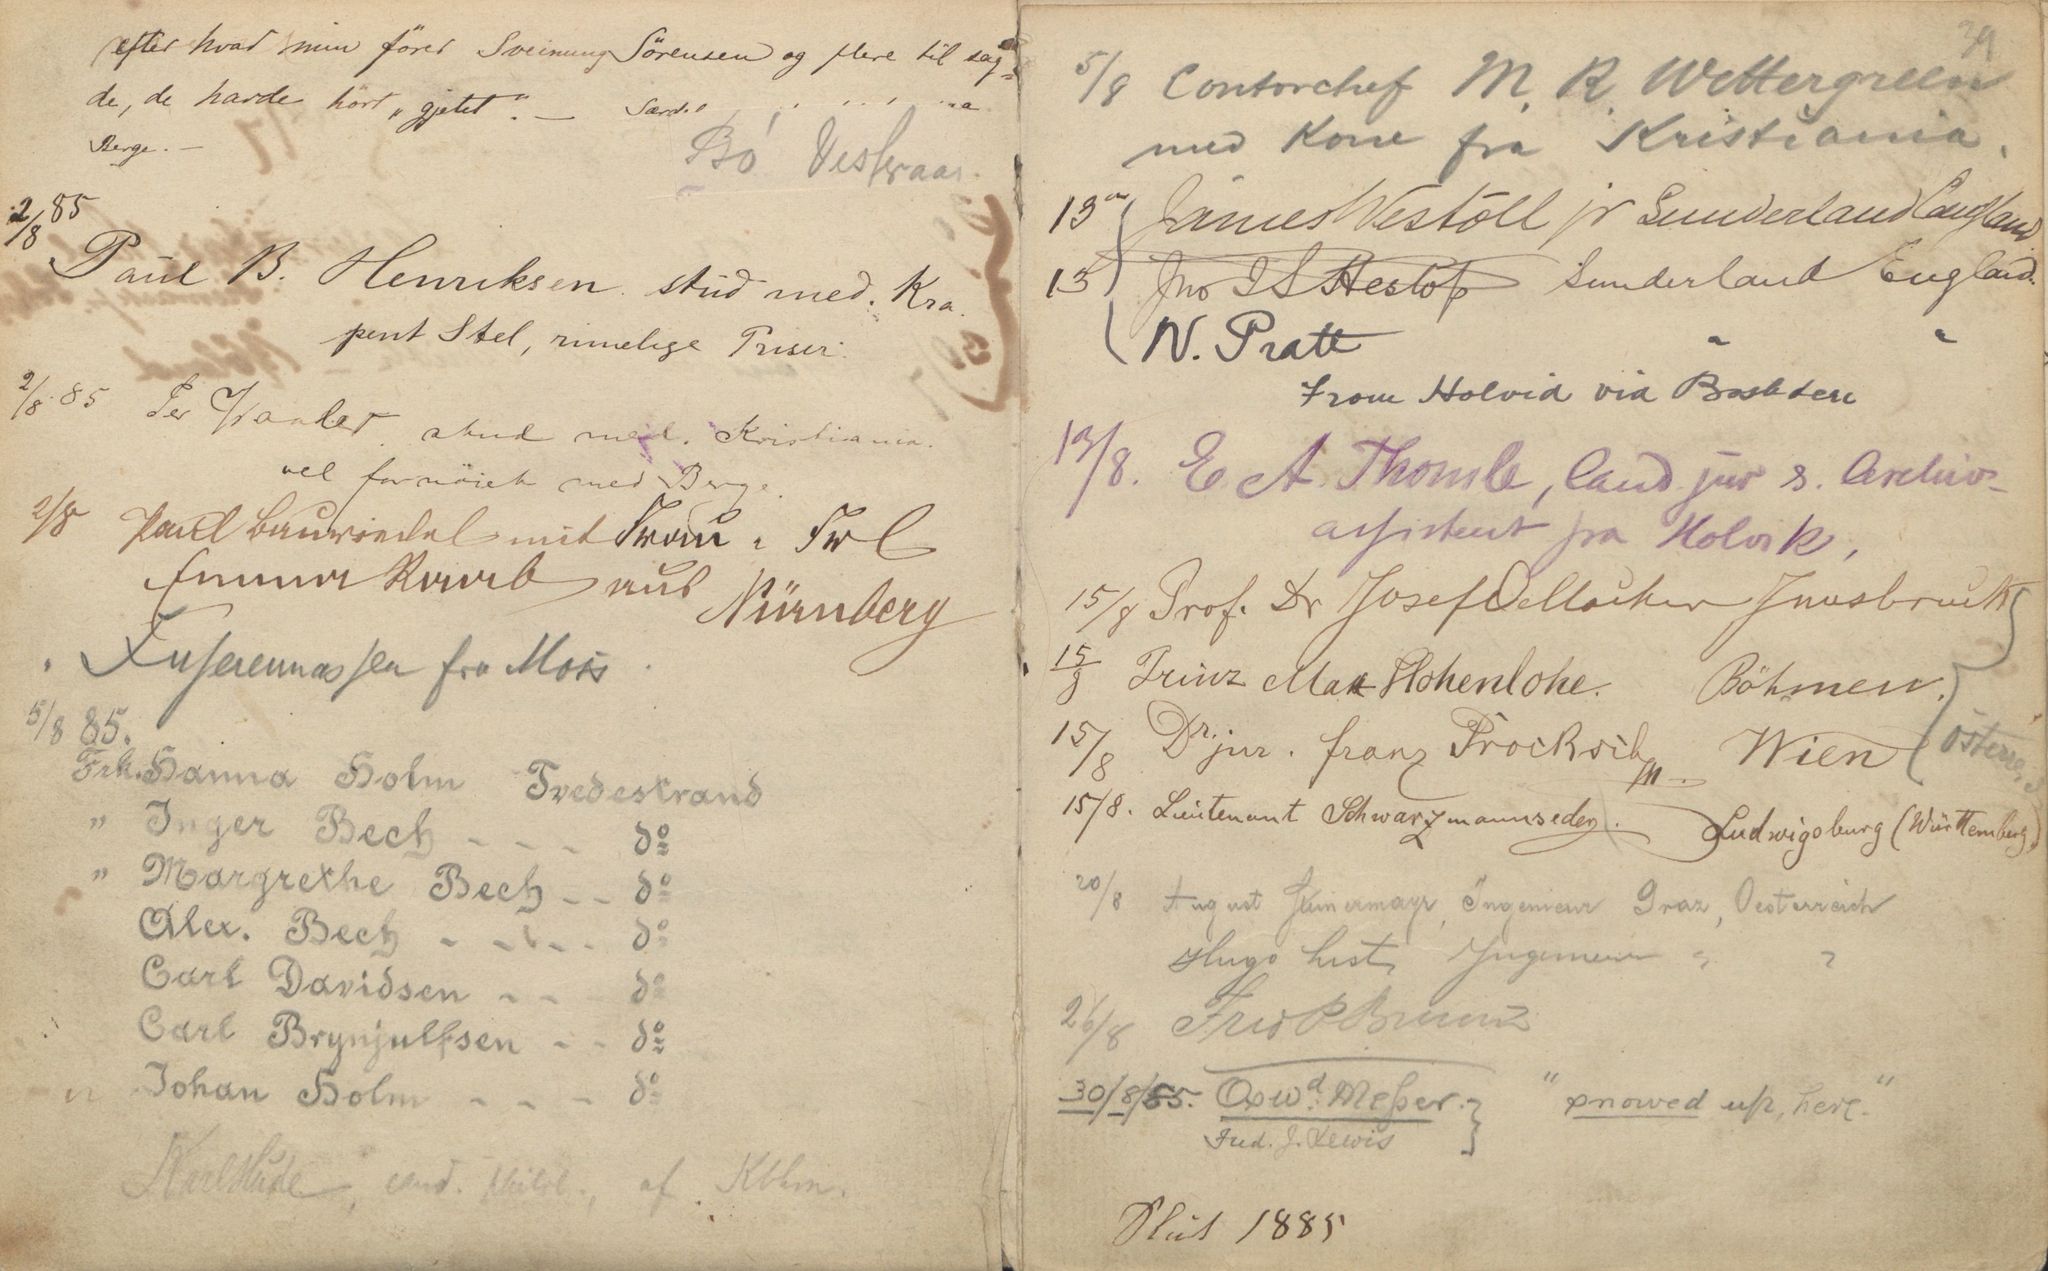 efter hvad min förer Sveinung Sörensen og flere til sag-
de, de havde hört "gjetet". —
Berge. —
Bö Vestraas.
2/8 85
Paul B. Henriksen stud med. Kra.
pent Stel, rimelige Priser.
2/8 85 Per stud med. Kristiania.
vel fornöiet med Berge.
2/8 Paul mit Frau & Frl
Emma aus Nürnberg
" fra Moss.
5/8 85.
Frk. Hanna Holm Tvedestrand
" Inger Bech - - - - do
" Margrethe Bech - - do
Alex. Bech - - - - do
Carl Davidsen - - do
Carl Brynjulfsen - - do
Johan Holm - - - do
Karl Hude, cand. philol., af Kbhn.
39
5/8 Contorchef M. R. Wettergreen
med Kone fra Kristiania.
13 James Westoll jr Sunderland England
13 Jno Heslop Sunderland England.
N. Pratt " "
From Holvid via
13/8. E. A. Thomle, Cand. jur & Archiv-
assistent fra Holvik,
15/8 Prof. Dr Josef Innsbruck
15/8 Prinz Max Hohenlohe. Böhmen.
15/8 Dr. jur. Franz Wien
Österr.
15/8. Lieutenant Schwarzmannseder. Ludwigsburg (Württemberg)
20/8 August Ingenieur Graz, Oesterreich
Hugo List, Ingenieur " "
26/8 Fred P
30/8/85. Oswd. Messer. "snowed up, here."
Fred. J. Lewis
Slut 1885